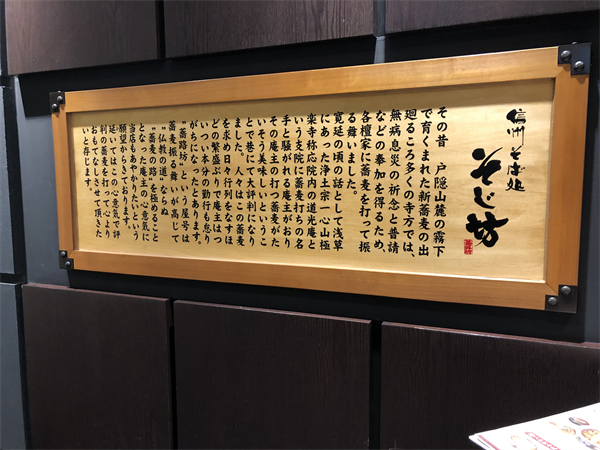 信州そば処
そじ坊
その昔 戸隠山麓の霧下
で育くまれた新蕎麦の出
廻るころ多くの寺方では、
無病息災の祈念と普請
などの奉加を得るため、
各檀家に蕎麦を打って振
る舞いました。
寛延の頃の話として浅草
にあった浄土宗一心山極
楽寺称応院内の道光庵と
いう支院に蕎麦打ちの名
手と騒がれる庵主がおり
その庵主の打つ蕎麦がた
いそう美味しいというこ
とで巷にて大評判になり
ました。人々はこの蕎麦
を求め日々行列をなすほ
どの繁盛ぶりで庵主はつ
いつい本分の勤行も怠り
がちになったとあります。
“蕎路坊”という屋号は
蕎麦振る舞いが高じて
“仏教の道”ならぬ
“蕎麦の路”を極めること
となった庵主の心意気に
当店もあやかりたいという
願望からきております。
延いてはこの心意気で評
判の蕎麦を打って心より
おもてなしさせて頂きた
いと存じます。